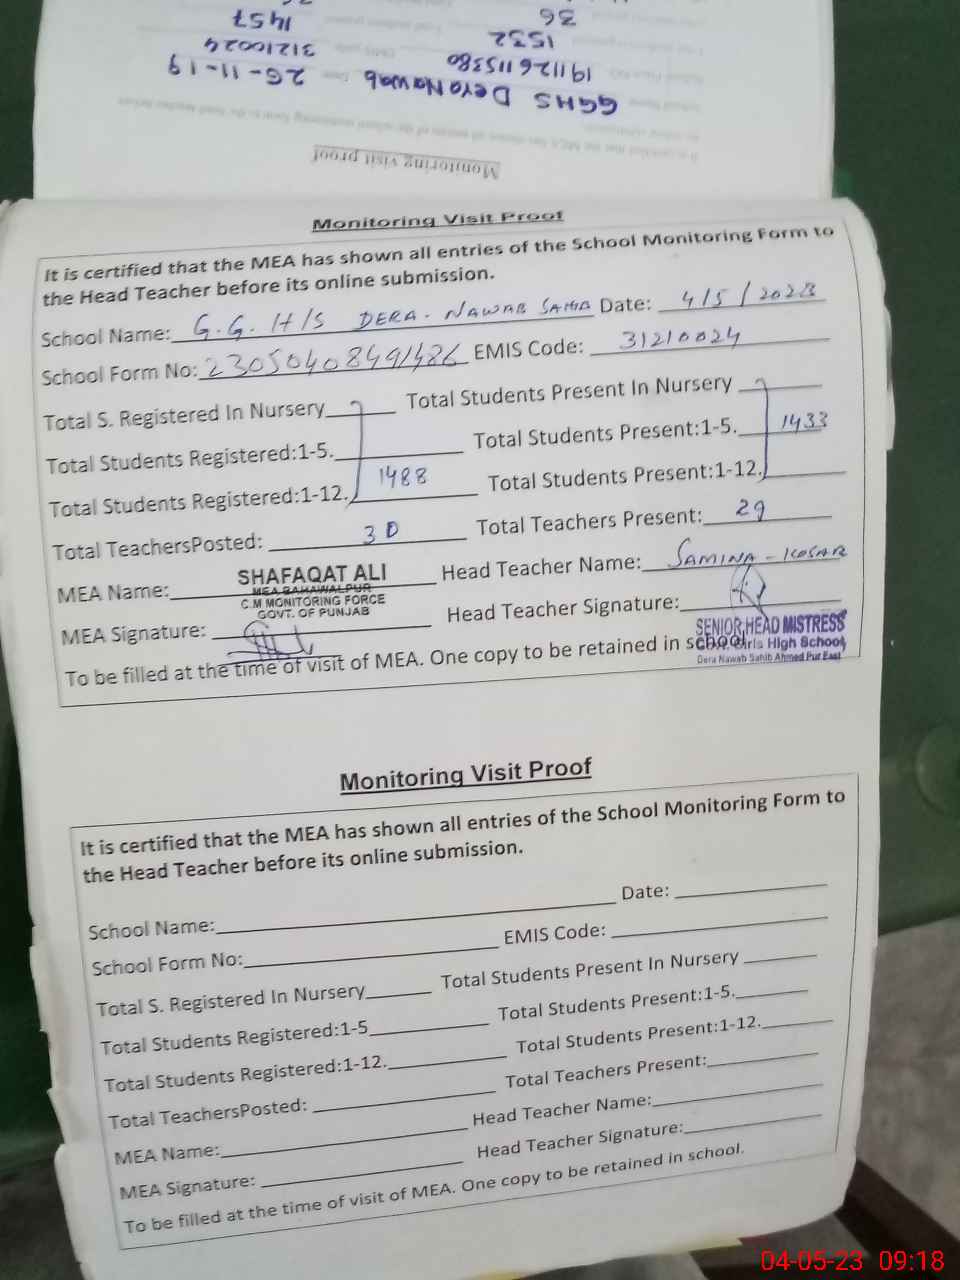 36
1457
1532
31210024
191126115380
26-11-19
GGHS Dera Nawab
Monitoring visit proof
Monitoring Visit Proof
It is certified that the MEA has shown all entries of the School Monitoring Form to
the Head Teacher before its online submission.
School Name: G.G. H/S DERA. NAWAB SAHIB Date: 4/5/2023
School Form No: 23050408491486 EMIS Code: 31210024
Total S. Registered In Nursery Total Students Present In Nursery
Total Students Registered:1-5. Total Students Present:1-5. 1433
Total Students Registered:1-12. 1488 Total Students Present:1-12.
Total TeachersPosted: 30 Total Teachers Present: 29
MEA Name: SHAFAQAT ALI Head Teacher Name: SAMINA - KOSAR
MEA BAHAWALPUR
C.M MONITORING FORCE
GOVT. OF PUNJAB
MEA Signature: Head Teacher Signature:
SENIOR HEAD MISTRESS
Girls High School
Dera Nawab Sahib Ahmed Pur East
To be filled at the time of visit of MEA. One copy to be retained in school.
Monitoring Visit Proof
It is certified that the MEA has shown all entries of the School Monitoring Form to
the Head Teacher before its online submission.
School Name: Date:
School Form No: EMIS Code:
Total S. Registered In Nursery Total Students Present In Nursery
Total Students Registered:1-5 Total Students Present:1-5.
Total Students Registered:1-12. Total Students Present:1-12.
Total TeachersPosted: Total Teachers Present:
MEA Name: Head Teacher Name:
MEA Signature: Head Teacher Signature:
To be filled at the time of visit of MEA. One copy to be retained in school.
04-05-23 09:18